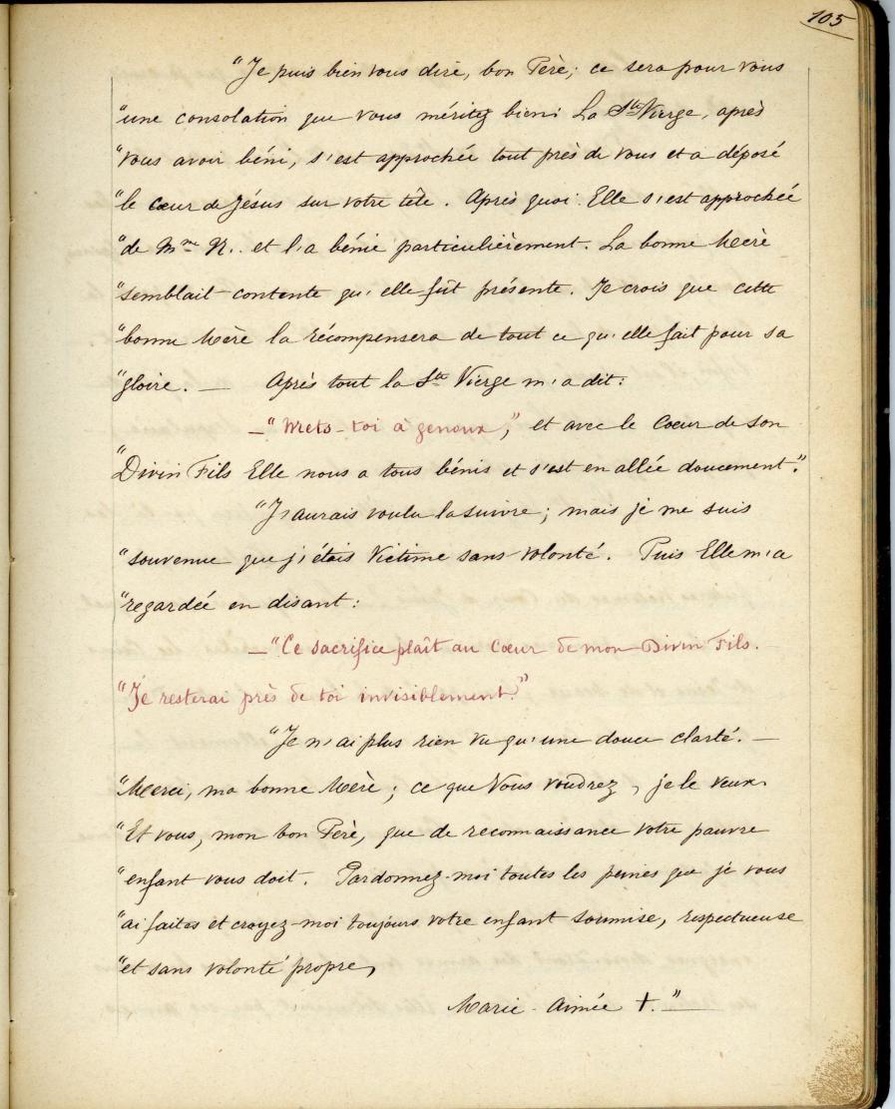 105
"Je puis bien vous dire, bon Père; ce sera pour vous
"une consolation que vous méritez bien: La Ste Vierge, après
"vous avoir béni, s'est approchée tout près de vous et a déposé
"le cœur de Jésus sur votre tête. Après quoi Elle s'est approchée
"de Mme N.. et l'a bénie particulièrement. La bonne Mère
"semblait contente qu'elle fût présente. Je crois que cette
"bonne Mère la récompensera de tout ce qu'elle fait pour sa
"gloire. — Après tout la Ste Vierge m'a dit:
—"Mets-toi à genoux", et avec le Cœur de son
"Divin Fils Elle nous a tous bénis et s'est en allée doucement."
"J'aurais voulu la suivre; mais je me suis
"souvenue que j'étais Victime sans volonté. Puis Elle m'a
"regardée en disant:
—"Ce sacrifice plaît au Cœur de mon Divin Fils.
"Je resterai près de toi invisiblement."
"Je n'ai plus rien vu qu'une douce clarté. —
"Merci, ma bonne Mère; ce que Vous voudrez, je le veux.
"Et vous, mon bon Père, que de reconnaissance votre pauvre
"enfant vous doit. Pardonnez-moi toutes les peines que je vous
"ai faites et croyez-moi toujours votre enfant soumise, respectueuse
"et sans volonté propre,
Marie-Aimée †."—